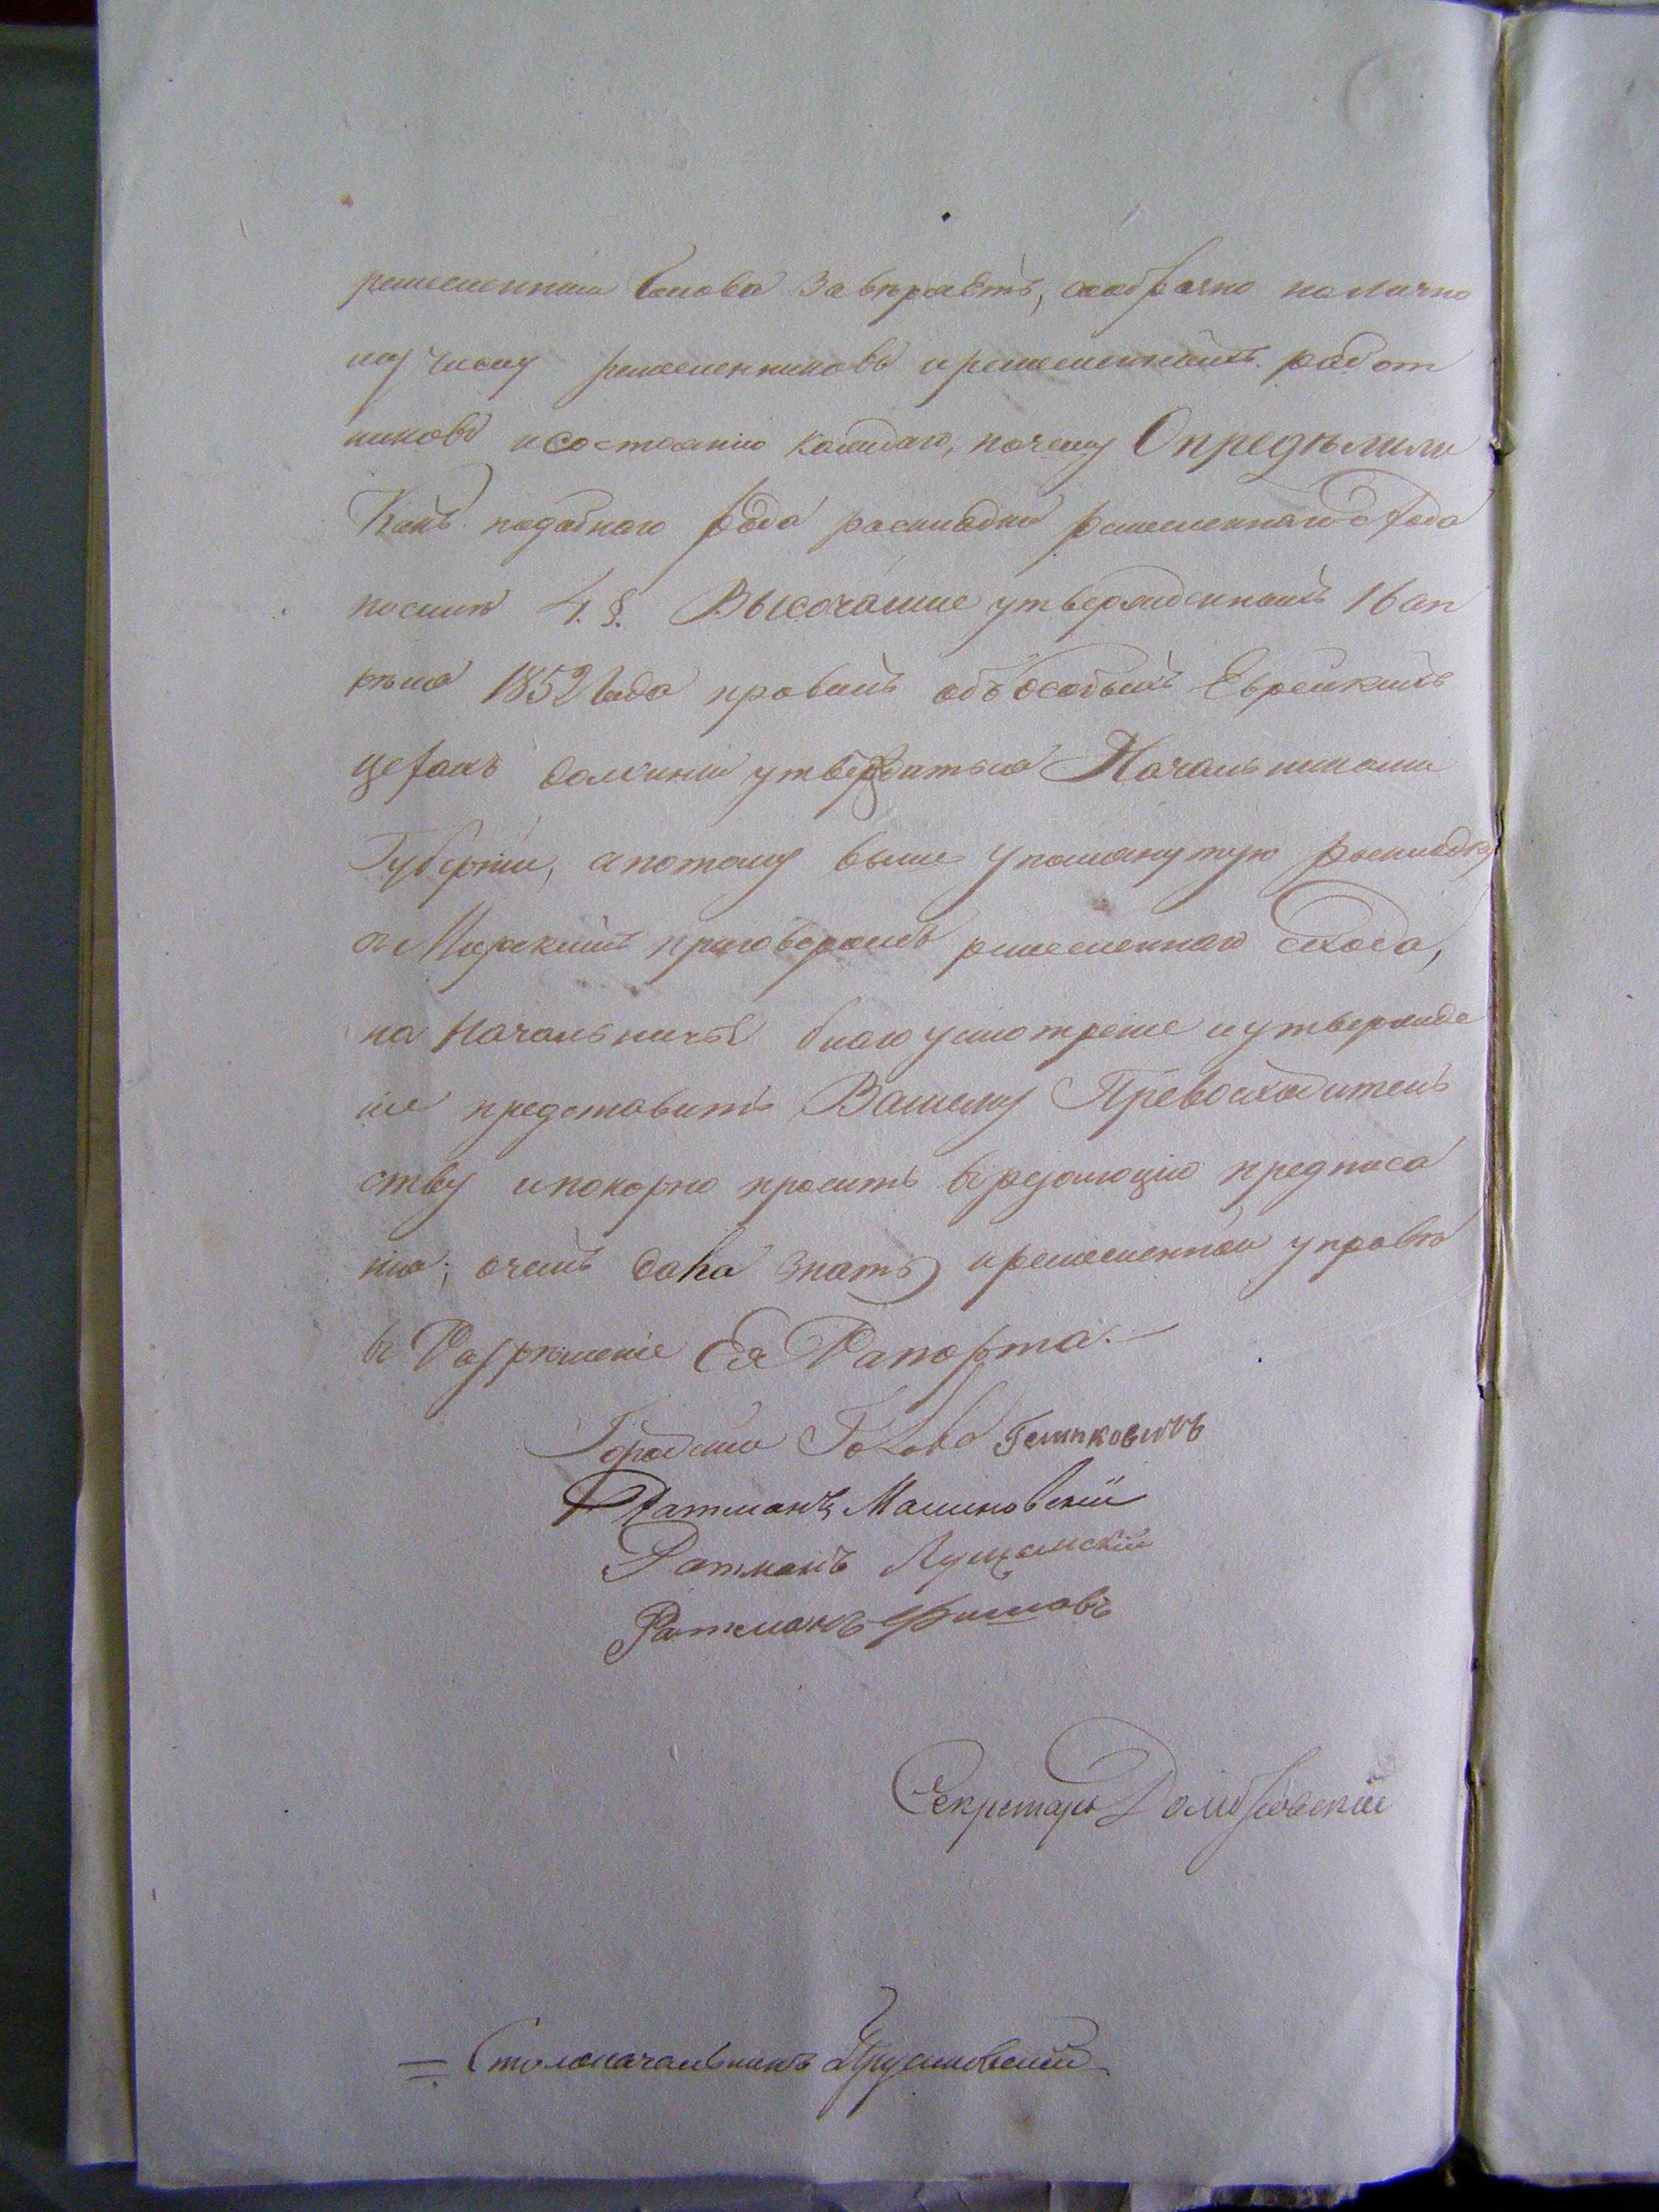 ремесленный Голова завѣряетъ, сообразно налично
му числу ремесленниковъ и ремесленныхъ работ
никовъ и состоянію каждаго, почему Опредѣлили
Какъ подобнаго рода раскладки ремесленнаго схода
по силѣ 4. §. Высочайше утвержденныхъ 16 ап
рѣля 1852 года правилъ объ особыхъ Еврейскихъ
цехахъ должны утвердиться Начальниками
Губерніи, а потому выше упомянутую раскладку
съ Мірскимъ приговоромъ ремесленнаго схода,
на Начальничье благоусмотреніе и утвержде
ніе представить Вашему Превосходитель
ству и покорно просить въ резолюцію предписа
нія; о чемъ дать знать ремесленной управѣ
въ Разрѣшеніе Ея Рапорта.—
Городской Голова
Ратманъ Малиновскій
Ратманъ
Ратманъ
Секретарь Домбровскій
= Столоначальникъ